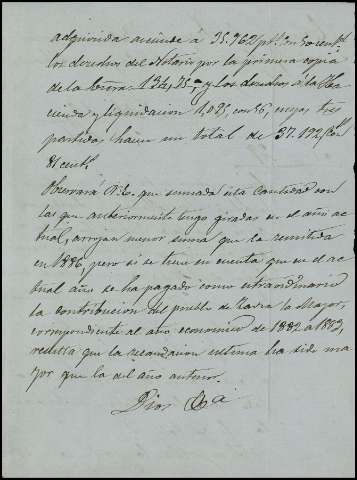 adquirida asciende á 35.962 pts. con 50 cent.s
los derechos del Notario por la primera copia
de la 134,75, y los derechos á la Ha-
cienda y liquidacion 1,095, con 56, cuyas tres
partidas hacen un total de 37.192, con
81 cent.s
Observará V.E. que sumada esta cantidad con
las que anteriormente tengo giradas en el año ac-
tual, arrojan menor suma que la remitida
en 1886, pero si se tiene en cuenta que en el ac-
tual año se ha pagado como extraordinario
la contribucion del pueblo de Zarza la Mayor,
correspondiente al año economico de 1882 a 1883,
resulta que la recaudacion ultima ha sido ma-
yor que la del año anterior.
Dios &a